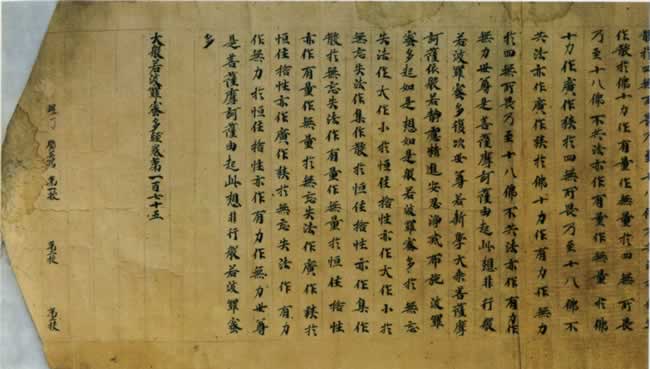 作散於佛十力作有量作無量於四無所畏
乃至十八佛不共法亦作有量作無量於佛
十力作廣作狹於四無所畏乃至十八佛不
共法亦作廣作狹於佛十力作有力作無力
於四無所畏乃至十八佛不共法亦作有力作
無力世尊是菩薩摩訶薩由起此想非行般
若波羅蜜多復次世尊若新學大乘菩薩摩
訶薩依般若靜慮精進安忍淨戒布施波羅
蜜多起如是想如是般若波羅蜜多於無忘
失法作大作小於恒住捨性亦作大作小於
無忘失法作集作散於恒住捨性亦作集作
散於無忘失法作有量作無量於恒住捨性
亦作有量作無量於無忘失法作廣作狹於
恒住捨性亦作廣作狹於無忘失法作有力
作無力於恒住捨性亦作有力作無力世尊
是菩薩摩訶薩由起此想非行般若波羅蜜
多
大般若波羅蜜多經卷第一百七十五